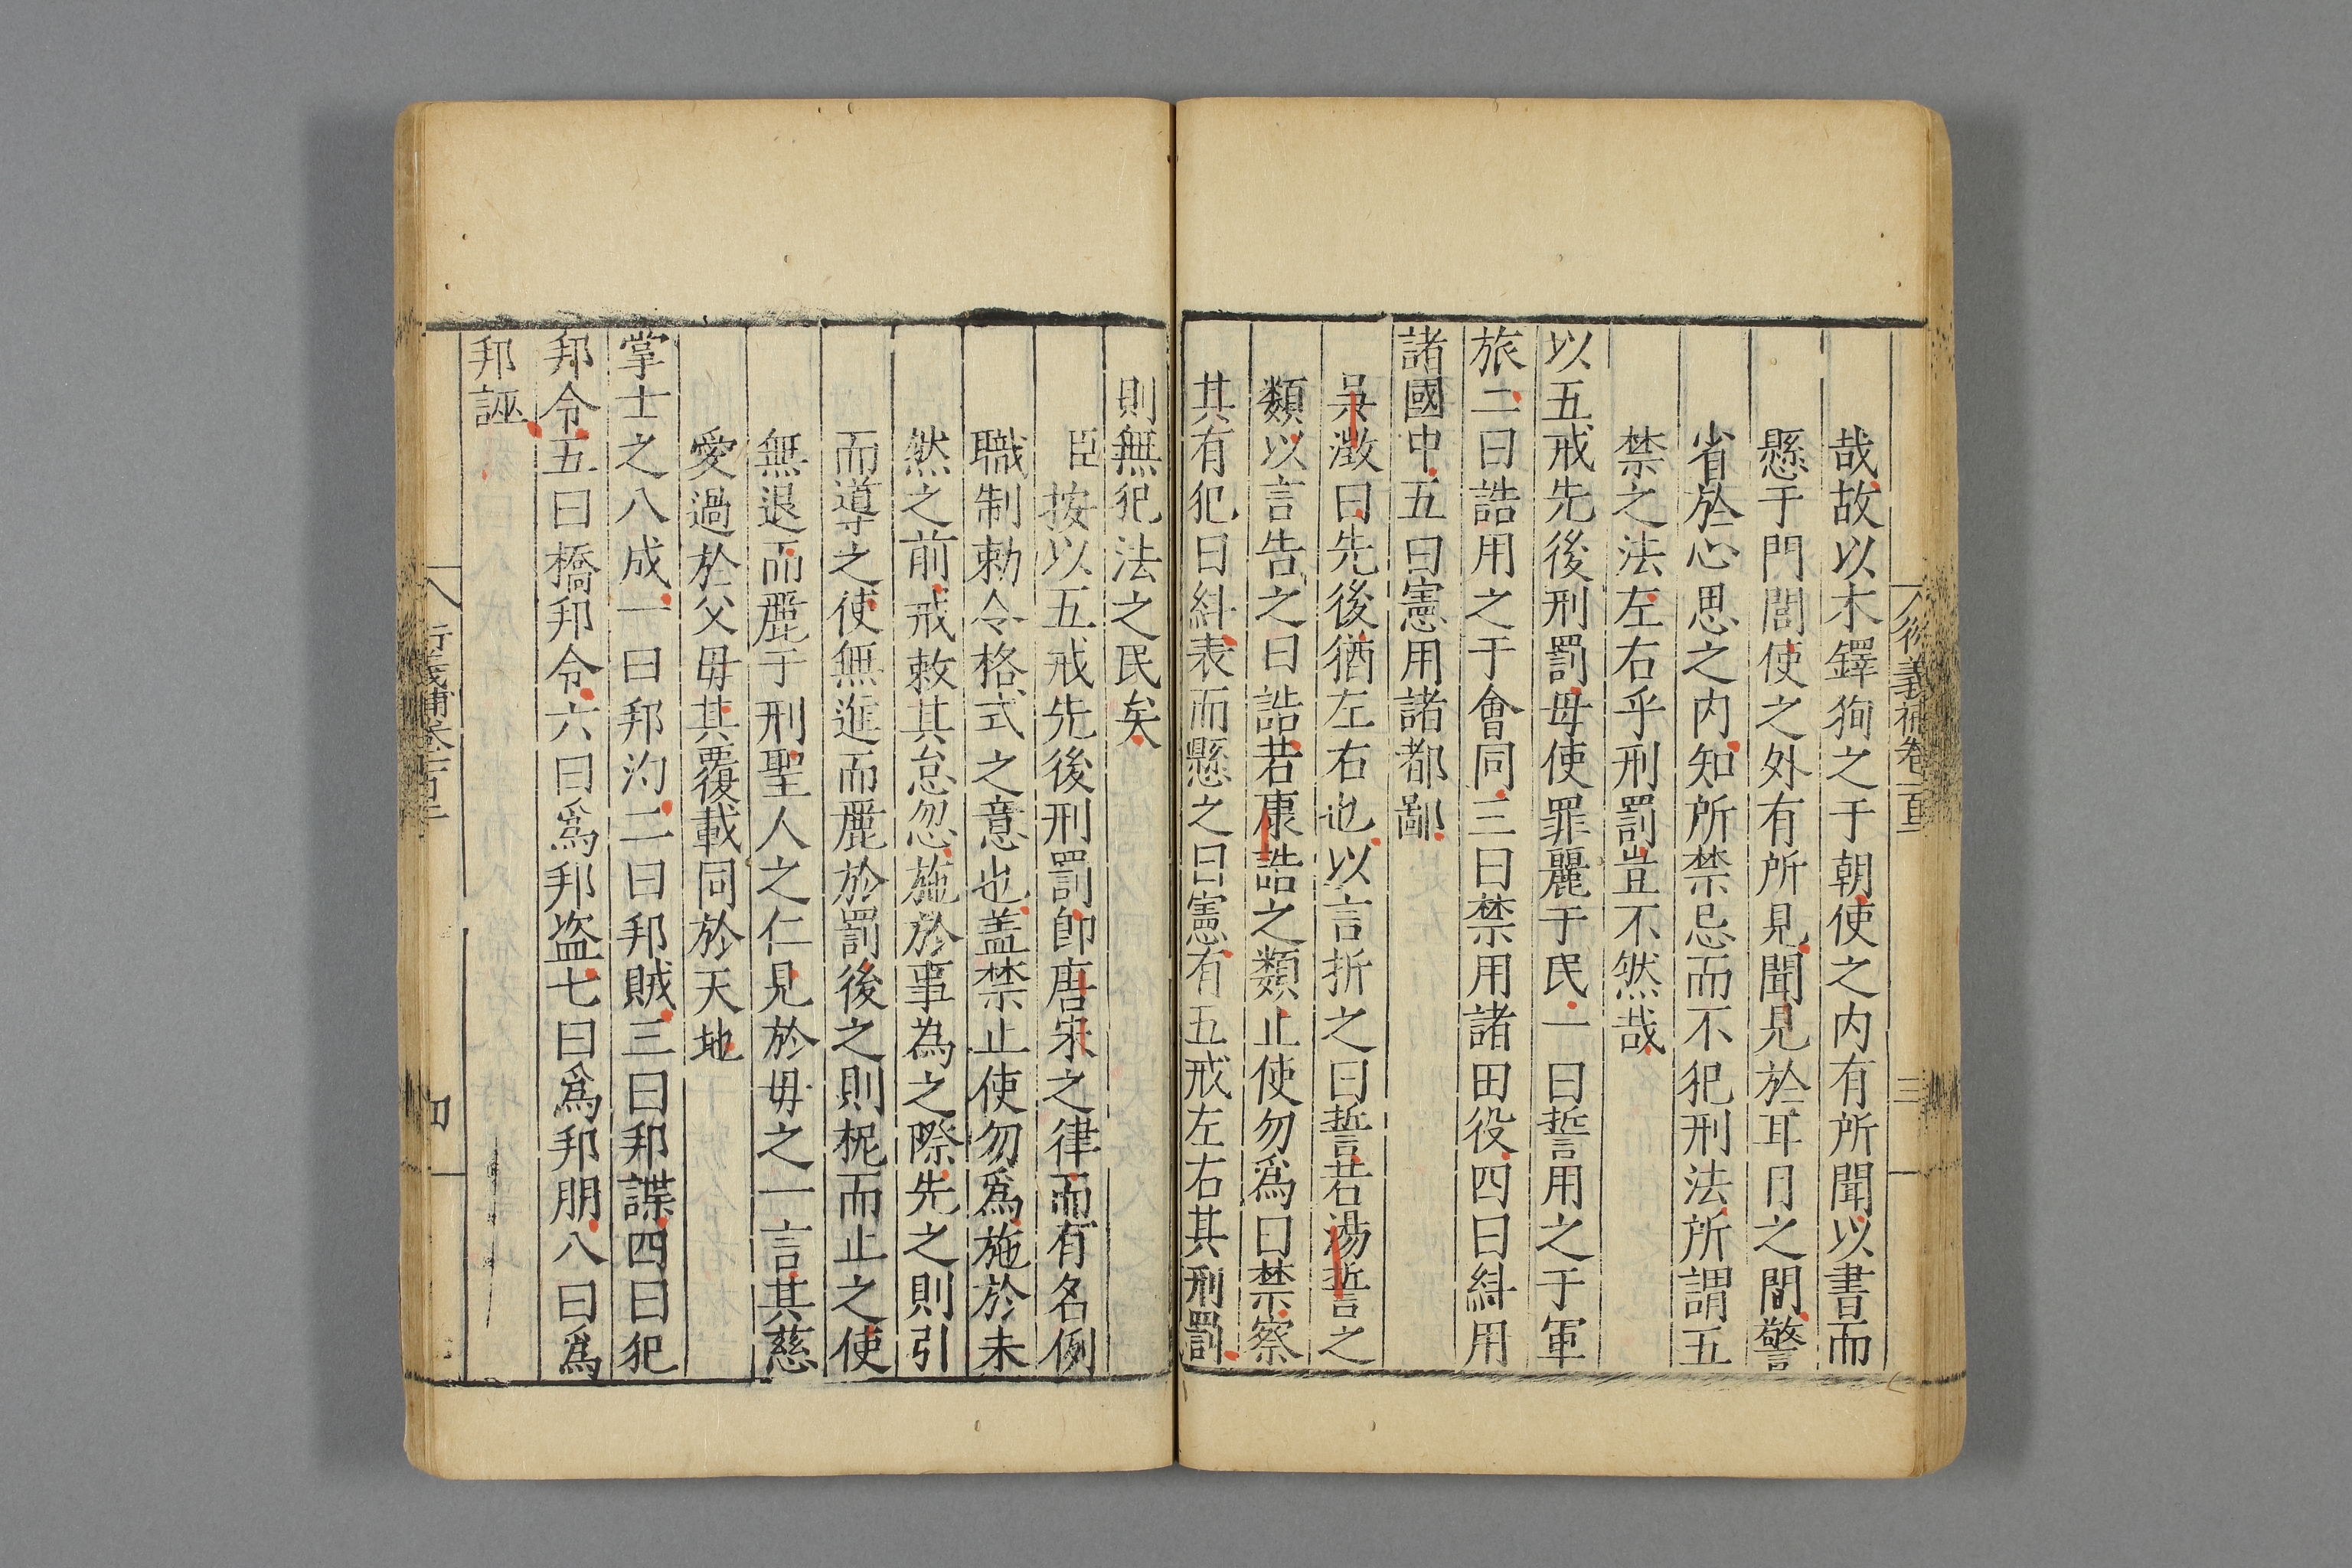 哉故以木鐸狥之于朝使之内有所聞以書而
懸于門閭使之外有所見聞見於耳目之間警
省於心思之内知所禁忌而不犯刑法所謂五
禁之法左右乎刑罰豈不然哉
以五戒先後刑罰毋使罪麗于民一曰誓用之于軍
旅二曰誥用之于會同三曰禁用諸田役四曰糾用
諸國中五曰憲用諸都鄙
吳澂曰先後猶左右也以言折之曰誓若湯誓之
類以言告之曰誥若康誥之類止使勿爲曰禁察
其有犯曰糾表而懸之曰憲有五戒左右其刑罰
則無犯法之民矣
臣按以五戒先後刑罰卽唐宋之律而有名例
職制勅令格式之意也盖禁止使勿爲施於未
然之前戒敕其怠忽施於事為之際先之則引
而導之使無進而麗於罰後之則柅而止之使
無退而麗于刑聖人之仁見於毋之一言其慈
愛過於父毋其覆載同於天地
掌士之八成一曰邦汋二曰邦賊三曰邦諜四曰犯
邦令五曰橋邦令六曰爲邦盗七曰爲邦朋八曰爲
邦誣